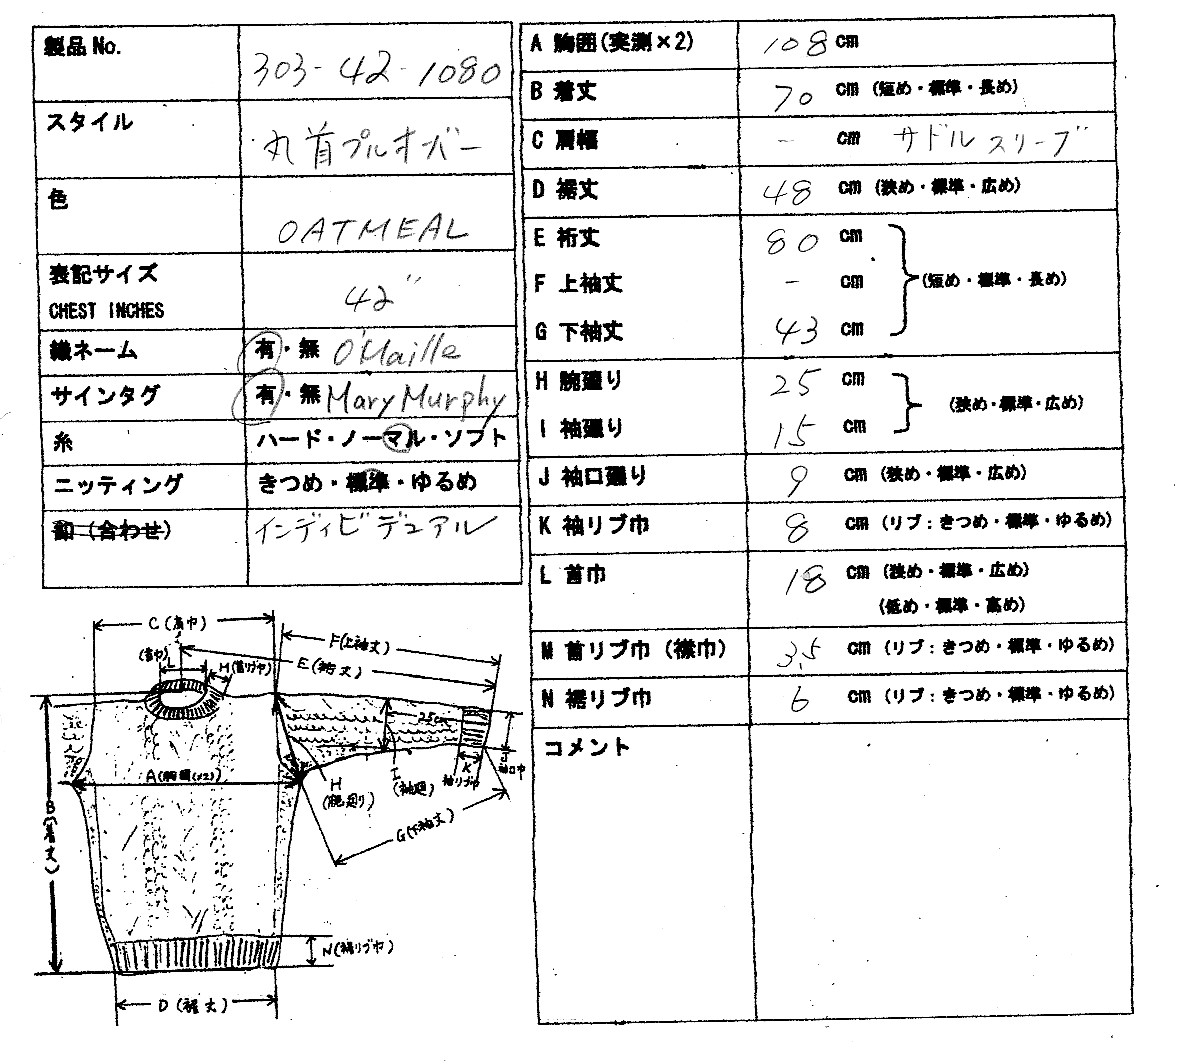 製品No. 303-42-1080
スタイル 丸首プルオーバー
色 OATMEAL
表記サイズ 42"
CHEST INCHES
織ネーム 有・無 O'Maille
サインタグ 有・無 Mary Murphy
糸 ハード・ノーマル・ソフト
ニッティング きつめ・標準・ゆるめ
(合わせ) インディビデュアル
A 胸囲(実測×2) 108 cm
B 着丈 70 cm (短め・標準・長め)
C 肩幅 - cm サドルスリーブ
D 裾丈 48 cm (狭め・標準・広め)
E 裄丈 80 cm
F 上袖丈 - cm (短め・標準・長め)
G 下袖丈 43 cm
H 腕廻り 25 cm
(狭め・標準・広め)
I 袖廻り 15 cm
J 袖口廻り 9 cm (狭め・標準・広め)
K 袖リブ巾 8 cm (リブ:きつめ・標準・ゆるめ)
L 首巾 18 cm (狭め・標準・広め)
(低め・標準・高め)
M 首リブ巾(襟巾) 3.5 cm (リブ:きつめ・標準・ゆるめ)
N 裾リブ巾 6 cm (リブ:きつめ・標準・ゆるめ)
コメント
C(肩巾)
F(上袖丈)
E(裄丈)
(首巾)
L
M(首リブ巾)
25cm
A(胸囲(×2))
H
(腕廻り)
I
(袖廻)
K
袖リブ巾
J
袖口巾
G(下袖丈)
B(着丈)
N(裾リブ巾)
D(裾丈)